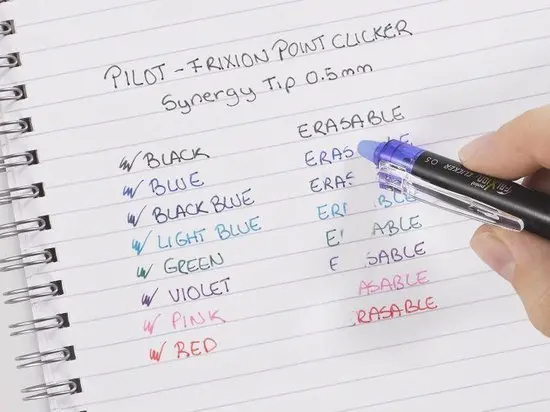 PILOT - FRIXION POINT CLICKER
Synergy Tip 0.5mm
ERASABLE
BLACK ERAS LE
BLUE ERAS
BLACK BLUE ERI BLE
LIGHT BLUE E ABLE
GREEN E SABLE
VIOLET ASABLE
PINK RASABLE
RED
CLICKER 0.5